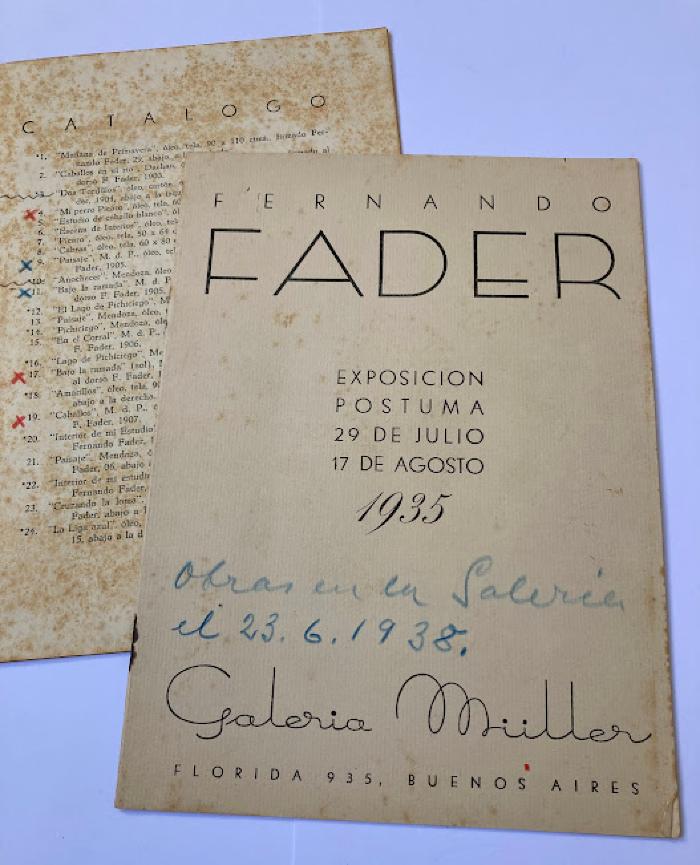 CATALOGO
*1. "Mañana de Primavera", óleo, tela, 90 x 110 cms., firmado Fer-
nando Fader, 29, abajo a l
2. "Caballos en el río",
dorso F. Fader, 1903.
3. "Dos Tordillos", óleo, cartón
1904, abajo a la
4. "Mi perro Pienro", óleo, tela, 60
5. "Estudio de caballo blanco", ól
6. "Escena de Interior", óleo, tel
7. "Pienro", óleo, tela, 50 x 64 c
8. "Cabras", óleo, tela, 60 x 80
9. "Paisaje", M. d. P., óleo, te
Fader, 1905.
*10. "Anochecer", Mendoza, óleo
*11. "Bajo la ramada", M. d. P
dorso F. Fader, 1905.
*12. "El Lago de Pichiciego", M
13. "Paisaje", Mendoza, óleo,
*14. "Pichiciego", Mendoza, óle
15. "En el Corral", M. d. P.,
F. Fader, 1906.
*16. "Lago de Pichiciego", Me
17. "Bajo la ramada" (sol), M
al dorso F. Fader, 1
*18. "Amarillos", óleo, tela, 90
abajo a la derecha.
19. "Caballos", M. d. P., ó
F. Fader, 1907.
*20. "Interior de mi Estudio"
Fernando Fader,
21. "Paisaje", Mendoza, ó
Fader, 06, abajo
*22. "Interior de mi estudi
Fernando Fader,
23. "Cruzando la loma",
Fader, abajo a l
*24. "La Liga azul", óleo,
15, abajo a la d
FERNANDO
FADER
EXPOSICION
POSTUMA
29 DE JULIO
17 DE AGOSTO
1935
Obras en la Galeria
el 23.6.1938.
Galeria Müller
FLORIDA 935, BUENOS AIRES